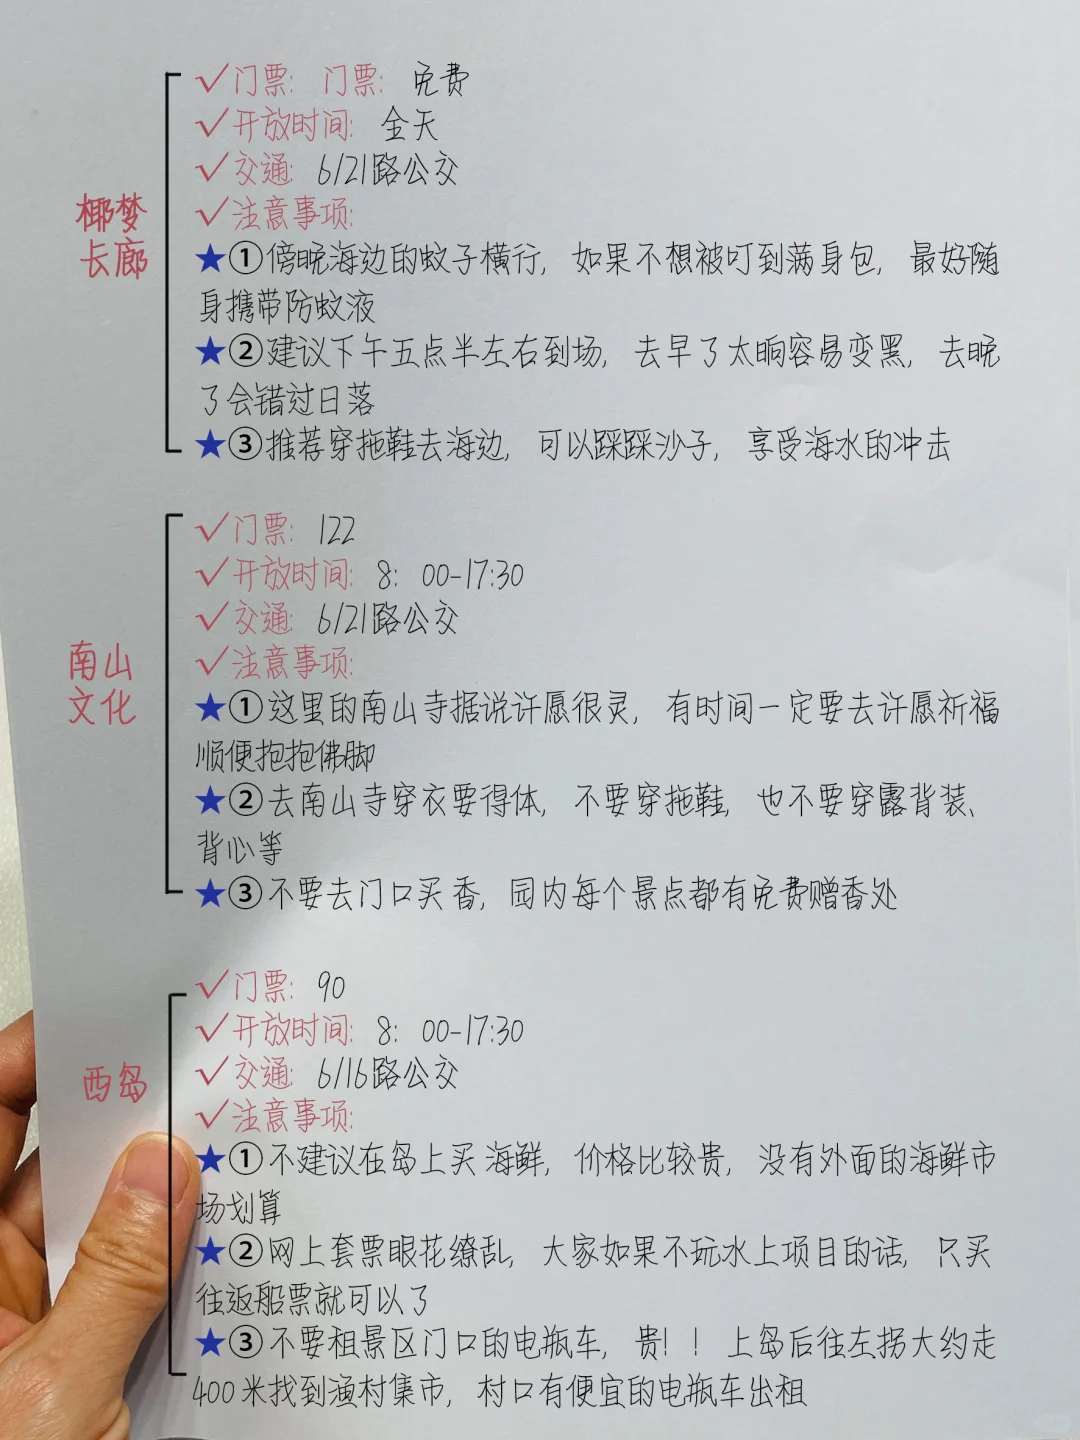 椰梦
长廊
✓门票： 门票： 免费
✓开放时间： 全天
✓交通： 6/21路公交
✓注意事项：
★①傍晚海边的蚊子横行，如果不想被叮到满身包，最好随
身携带防蚊液
★②建议下午五点半左右到场，去早了太晌容易变黑，去晚
了会错过日落
★③推荐穿拖鞋去海边，可以踩踩沙子，享受海水的冲击
南山
文化
✓门票： 122
✓开放时间： 8：00-17:30
✓交通： 6/21路公交
✓注意事项：
★①这里的南山寺据说许愿很灵，有时间一定要去许愿祈福
顺便抱抱佛脚
★②去南山寺穿衣要得体，不要穿拖鞋，也不要穿露背装、
背心等
★③不要去门口买香，园内每个景点都有免费赠香处
西岛
✓门票： 90
✓开放时间： 8：00-17:30
✓交通： 6/16路公交
✓注意事项：
★①不建议在岛上买 海鲜，价格比较贵，没有外面的海鲜市
场划算
★②网上套票眼花缭乱，大家如果不玩水上项目的话，只买
往返船票就可以了
★③不要租景区门口的电瓶车，贵！！上岛后往左拐大约走
400米找到渔村集市，村口有便宜的电瓶车出租